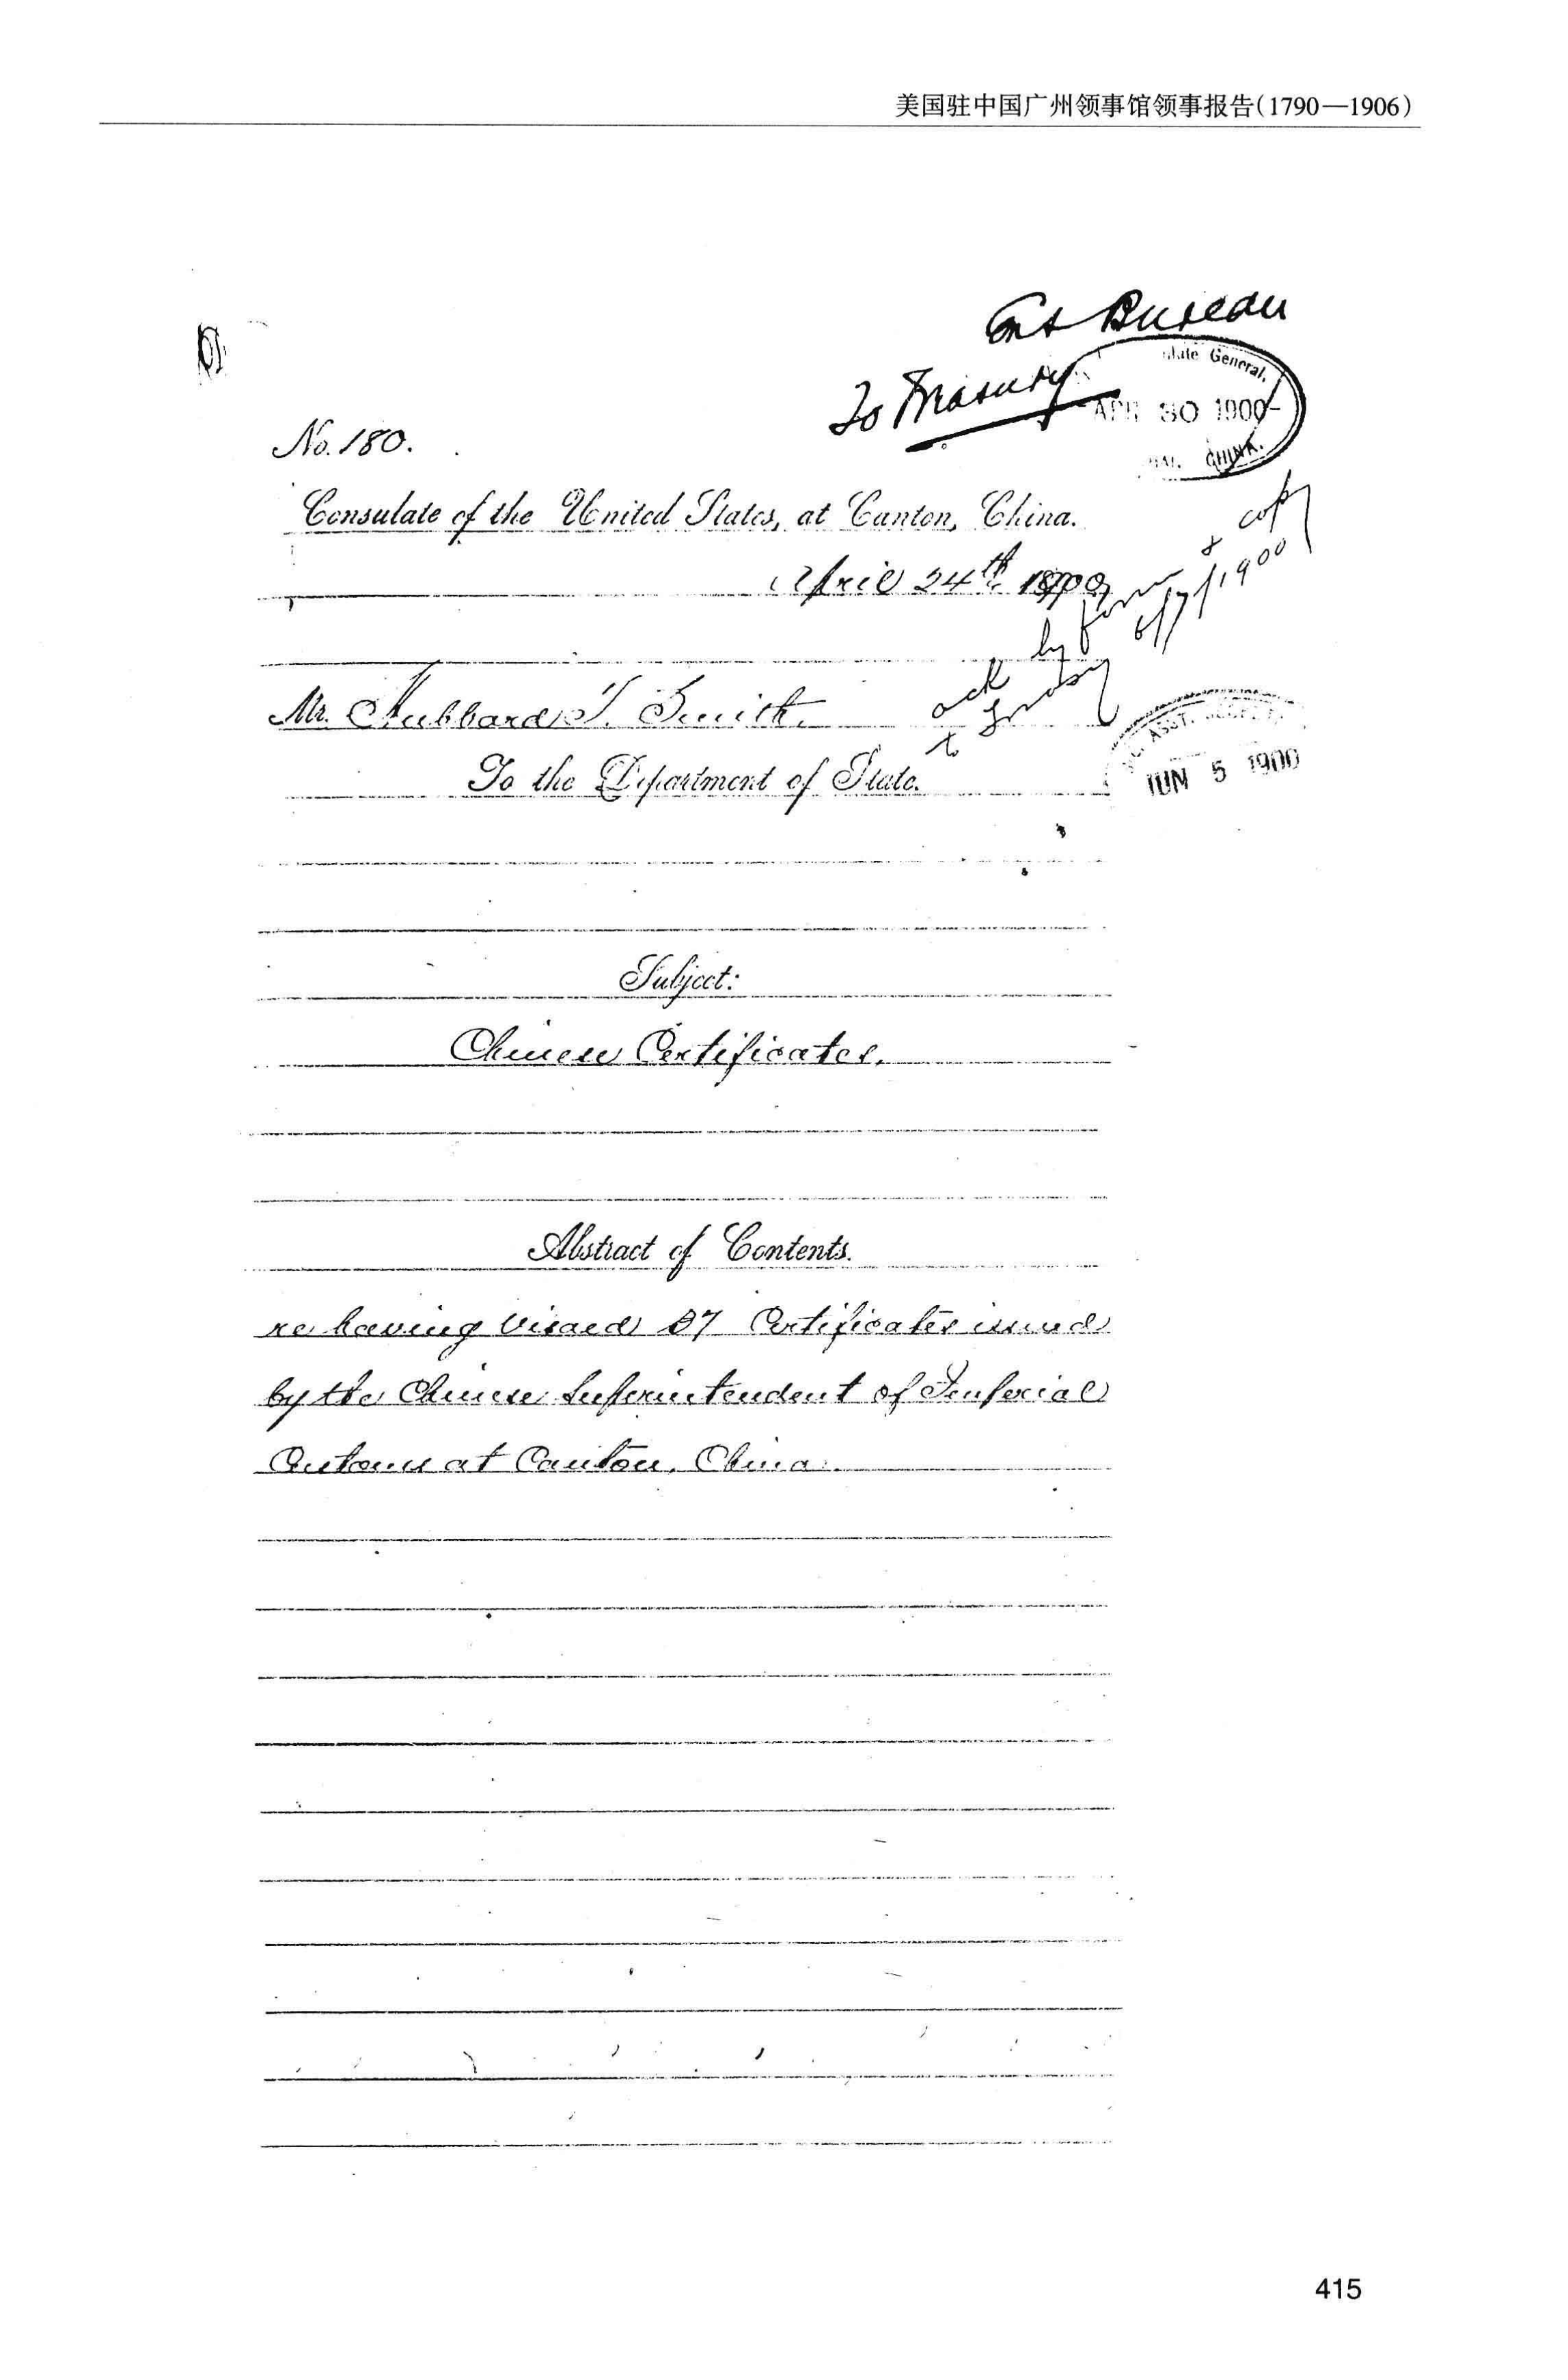 美国驻中国广州领事馆领事报告(1790—1906)
Bureau
To Treasury
General,
APR 30 1900
CHINA.
No. 180.
Consulate of the United States, at Canton, China.
April 24th 1900
ack by form & copy
to Treasury 6/7/1900
Mr. Hubbard T. Smith.
To the Department of State.
ASST.
JUN 5 1900
Subject:
Chinese Certificates.
Abstract of Contents.
re having visaed Certificates issued
by the Chinese Superintendent of Imperial
Customs at Canton, China.
415